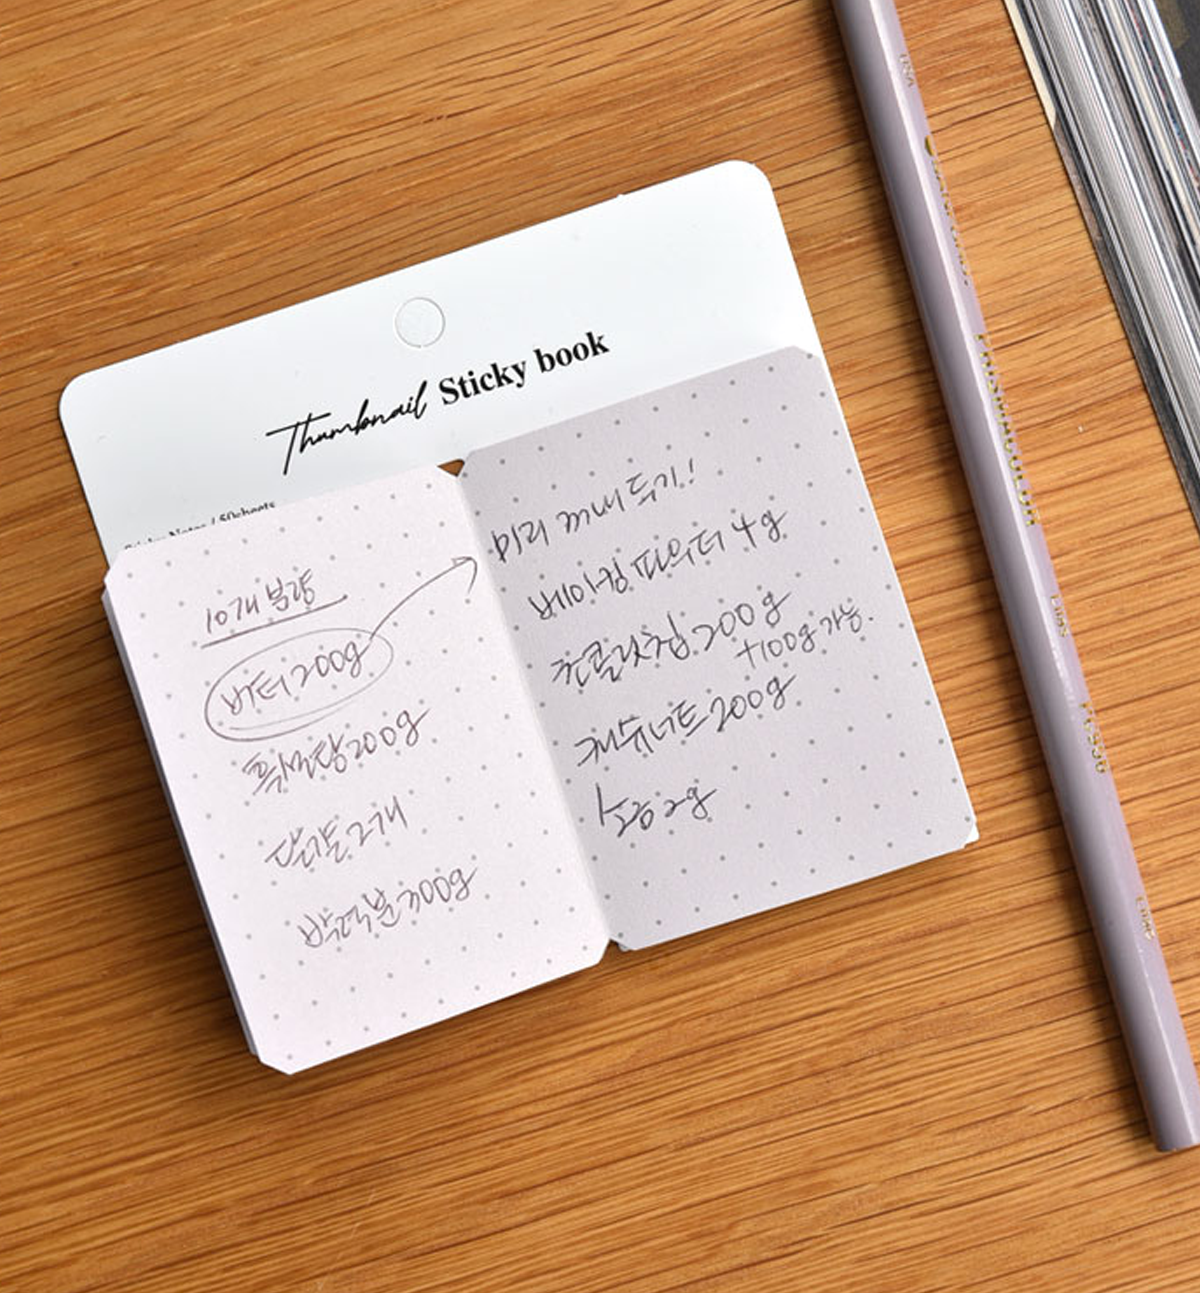 Thumbnail Sticky book
Sticky Notes / 50sheets
10개 분량
버터 200g
흑설탕 200g
달걀 2개
박력분 300g
미리 꺼내 두기!
베이킹 파우더 4g
초콜릿칩 200g
+100g 가능.
캐슈너트 200g
소금 2g
PRISMACOLOR